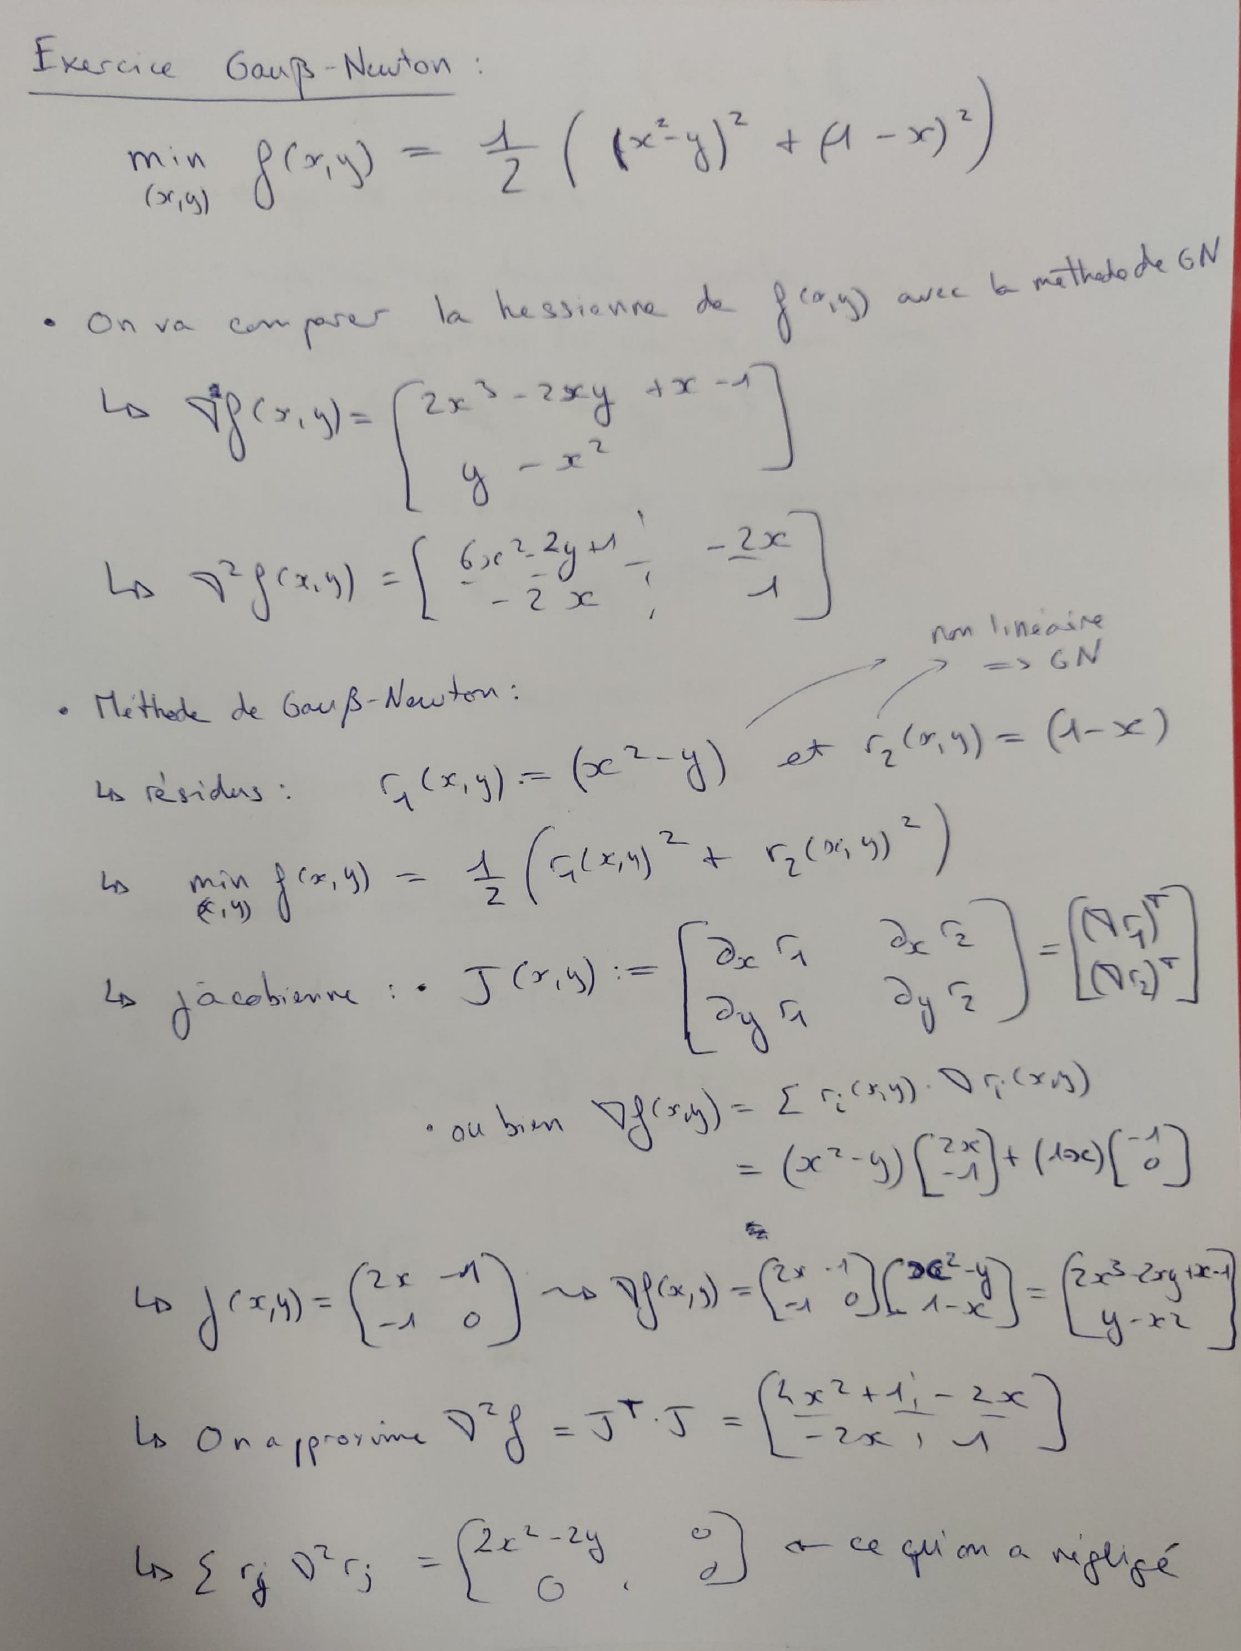 Exercice Gauß-Newton :
min f(x,y) = 1/2 ( (x²-y)² + (1-x)² )
(x,y)
• On va comparer la hessienne de f(x,y) avec la méthode de GN
↳ ∇f(x,y) = [ 2x³ - 2xy + x - 1
y - x² ]
↳ ∇²f(x,y) = [ 6x² - 2y + 1 ; -2x
-2x ; 1 ]
non linéaire
=> GN
• Méthode de Gauß-Newton :
↳ résidus : r₁(x,y) := (x² - y) et r₂(x,y) = (1-x)
↳ min f(x,y) = 1/2 ( r₁(x,y)² + r₂(x,y)² )
(x,y)
↳ jacobienne : • J(x,y) := [ ∂x r₁ ∂x r₂ ] = [ (∇r₁)ᵀ ]
[ ∂y r₁ ∂y r₂ ] [ (∇r₂)ᵀ ]
• ou bien ∇f(x,y) = Σ rᵢ(x,y) · ∇rᵢ(x,y)
= (x²-y) [ 2x -1 ] + (1-x) [ -1 0 ]
↳ J(x,y) = ( 2x -1 ) ~> ∇f(x,y) = ( 2x -1 ) ( x²-y ) = [ 2x³-2xy+x-1 ]
( -1 0 ) ( -1 0 ) ( 1-x ) [ y-x2 ]
↳ On approxime ∇²f = Jᵀ·J = [ 4x²+1 ; -2x
-2x ; 1 ]
↳ Σ rⱼ ∇²rⱼ = [ 2x²-2y , 0 ← ce qu'on a négligé
0 , 0 ]